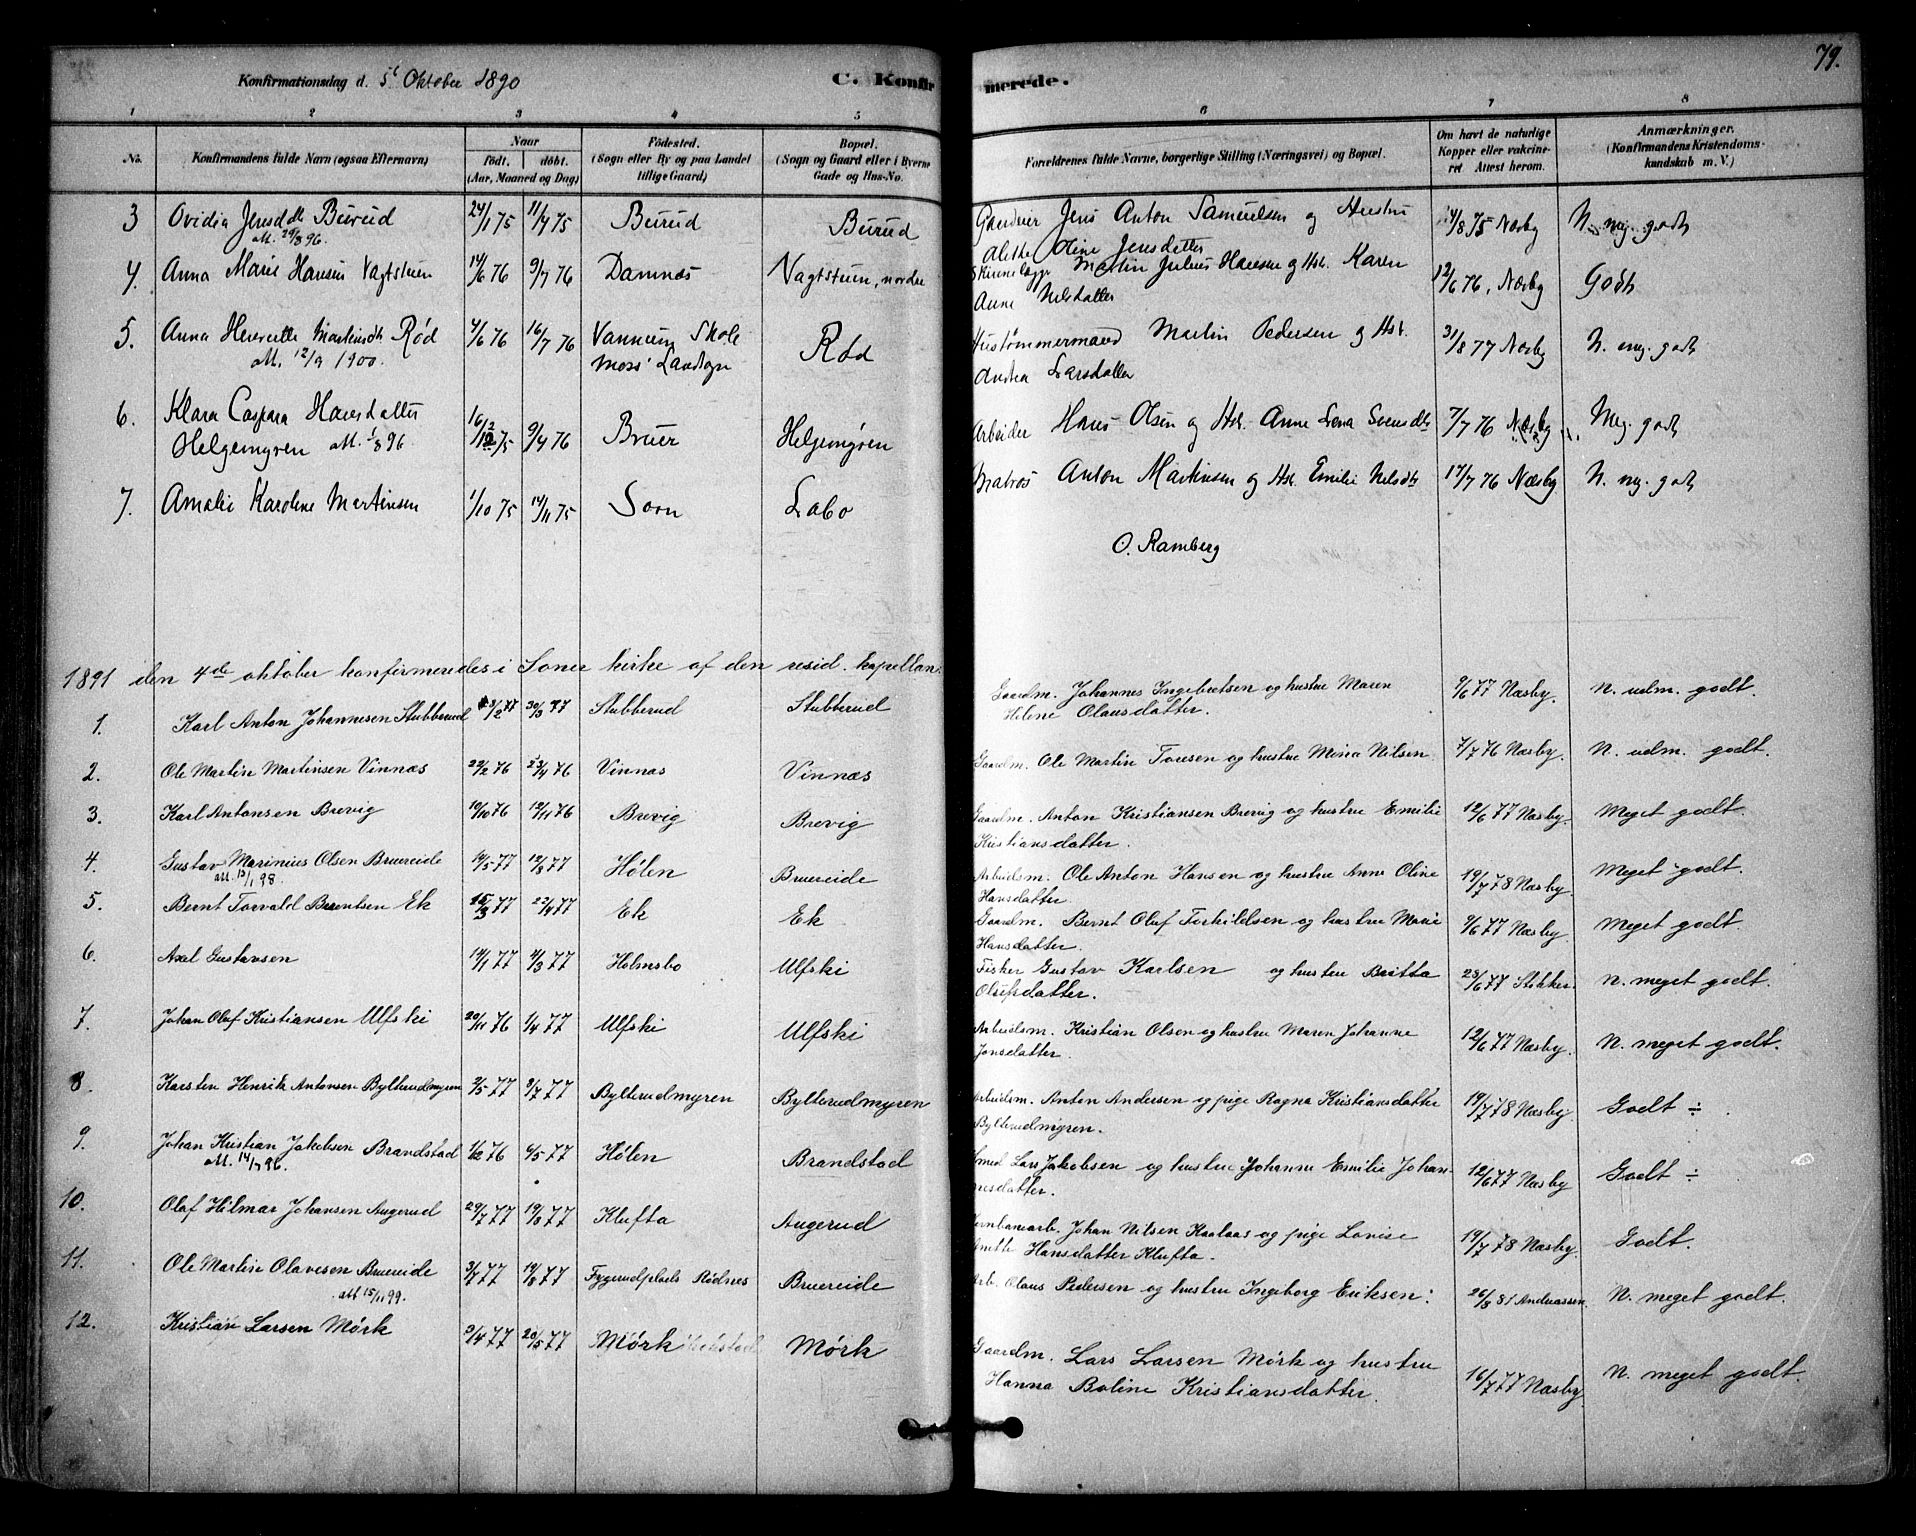 79.
Konfirmationsdag d. 5te Oktober 1890 C. Konfirmerede.
1 2 3 4 5 6 7 8
No. Konfirmandens fulde Navn (ogsaa Efternavn) Naar født. døbt. (Aar, Maaned og Dag) Fødested. (Sogn eller By og paa Landet tillige Gaard) Bopæl. (Sogn og Gaard eller i Byerne Gade og Hus-No. Forældrenes fulde Navne, borgerlige Stilling (Næringsvei) og Bopæl. Om havt de naturlige Kopper eller vakcineret Attest herom. Anmærkninger. (Konfirmandens Kristendomskundskab m. V.)
3 Ovidia Jensdtr Burud 24/1 75 11/4 75 Burud Burud Gaardmer Jens Anton Samuelsen og Hustru 14/8 75 Næsby N. meg. godt
att. 29/8 96. Alethe Oline Jensdatter
4. Anna Marie Hansen Vagtstuen 14/6 76 9/7 76 Damnæs Vagtstuen, nordre Skinnelægger Martin Julius Hansen og Hst. Karen 12/6 76, Næsby Godt
Anne Nilsdatter
5. Anna Henriette Martinsdtr Rød 4/6 76 16/7 76 Vannum Skole Rød Hustømmermand Martin Pedersen og Hst. 31/8 77 Næsby N. meg. godt
att. 12/9 1900. Moss Landsogn Andrea Larsdatter
6. Klara Caspara Hansdatter 16/12 75 9/4 76 Bruer Helgemyren Arbeider Hans Olsen og Hst. Anne Lena Svensdtr 7/7 76 Næsby Meg. godt
Helgemyren att. 1/8 96
7. Amalie Karoline Martinsen 1/10 75 14/11 75 Soon Labo Matros Anton Martinsen og Hst. Emilie Nilsdtr 17/7 76 Næsby N. meg. godt
O. Ramberg
1891 den 4de oktober konfirmeredes i Soner kirke af den resid. kapellan.
1. Karl Anton Johannesen Stubberud 3/2 77 30/3 77 Stubberud Stubberud Gaardm. Johannes Ingebretsen og hustru Maren 9/6 77 Næsby. N. udm. godt.
Helene Olausdatter.
2. Ole Martin Martinsen Vinnæs 22/2 76 23/4 76 Vinnæs Vinnæs Gaardm. Ole Martin Toresen og hustru Mina Nilsen 7/7 76 Næsby. N. udm. godt.
3. Karl Antonsen Brevig 10/10 76 12/11 76 Brevig Brevig Gaardm. Anton Kristiansen Brevig og hustru Emilie 12/6 77 Næsby. Meget godt.
Kristiansdatter.
4. Gustav Marinius Olsen Bruereide 14/5 77 12/8 77 Hølen Bruereide Arbeidsm. Ole Anton Hansen og hustru Anne Oline 19/7 78 Næsby. Meget godt.
att. 13/1 98. Hansdatter
5. Bernt Torvald Berntsen Ek 15/3 77 22/4 77 Ek Ek Gaardm. Bernt Oluf Torkildsen og hustru Marie 9/6 77 Næsby. Meget godt.
Hansdatter.
6. Axel Gustavsen 14/1 77 4/3 77 Holmsbo Ulfski Fisker Gustav Karlsen og hustru Britta 23/6 77 Stikker. N. meget godt.
Olufsdatter.
7. Johan Oluf Kristiansen Ulfski 20/11 76 1/4 77 Ulfski Ulfski Arbeidsm. Kristian Olsen og hustru Maren Johanne 12/6 77 Næsby. N. meget godt.
Jonsdatter.
8. Karsten Henrik Antonsen Bylterudmyren 2/5 77 8/7 77 Bylterudmyren Bylterudmyren Arbeidsm. Anton Andersen og pige Ragna Kristiansdatter 19/7 78 Næsby. Godt ÷
Bylterudmyren.
9. Johan Kristian Jakobsen Brandstad 1/12 76 6/5 77 Hølen Brandstad Smed Lars Jakobsen og hustru Johanne Emilie Johan- 12/6 77 Næsby Godt ÷
att. 14/7 96. nesdatter.
10. Olaf Hilmar Johansen Augerud 29/7 77 19/8 77 Klufta Augerud Jernbanearb. Johan Nilsen Kaalaas og pige Lovise 19/7 78 Næsby. Godt.
Anette Hansdatter Klufta.
11. Ole Martin Olavesen Bruereide 3/7 77 19/8 77 Fygerudplads Rødnes Bruereide Arb. Olaus Pedersen og hustru Ingeborg Eriksen: 26/3 81 Andreassen. N. meget godt.
att 15/11 99.
12. Kristian Larsen Mørk 9/4 77 20/5 77 Mørk Mørk Gaardm. Lars Larsen Mørk og hustru 16/7 77 Næsby N. meget godt.
Hanna Boline Kristiansdatter.